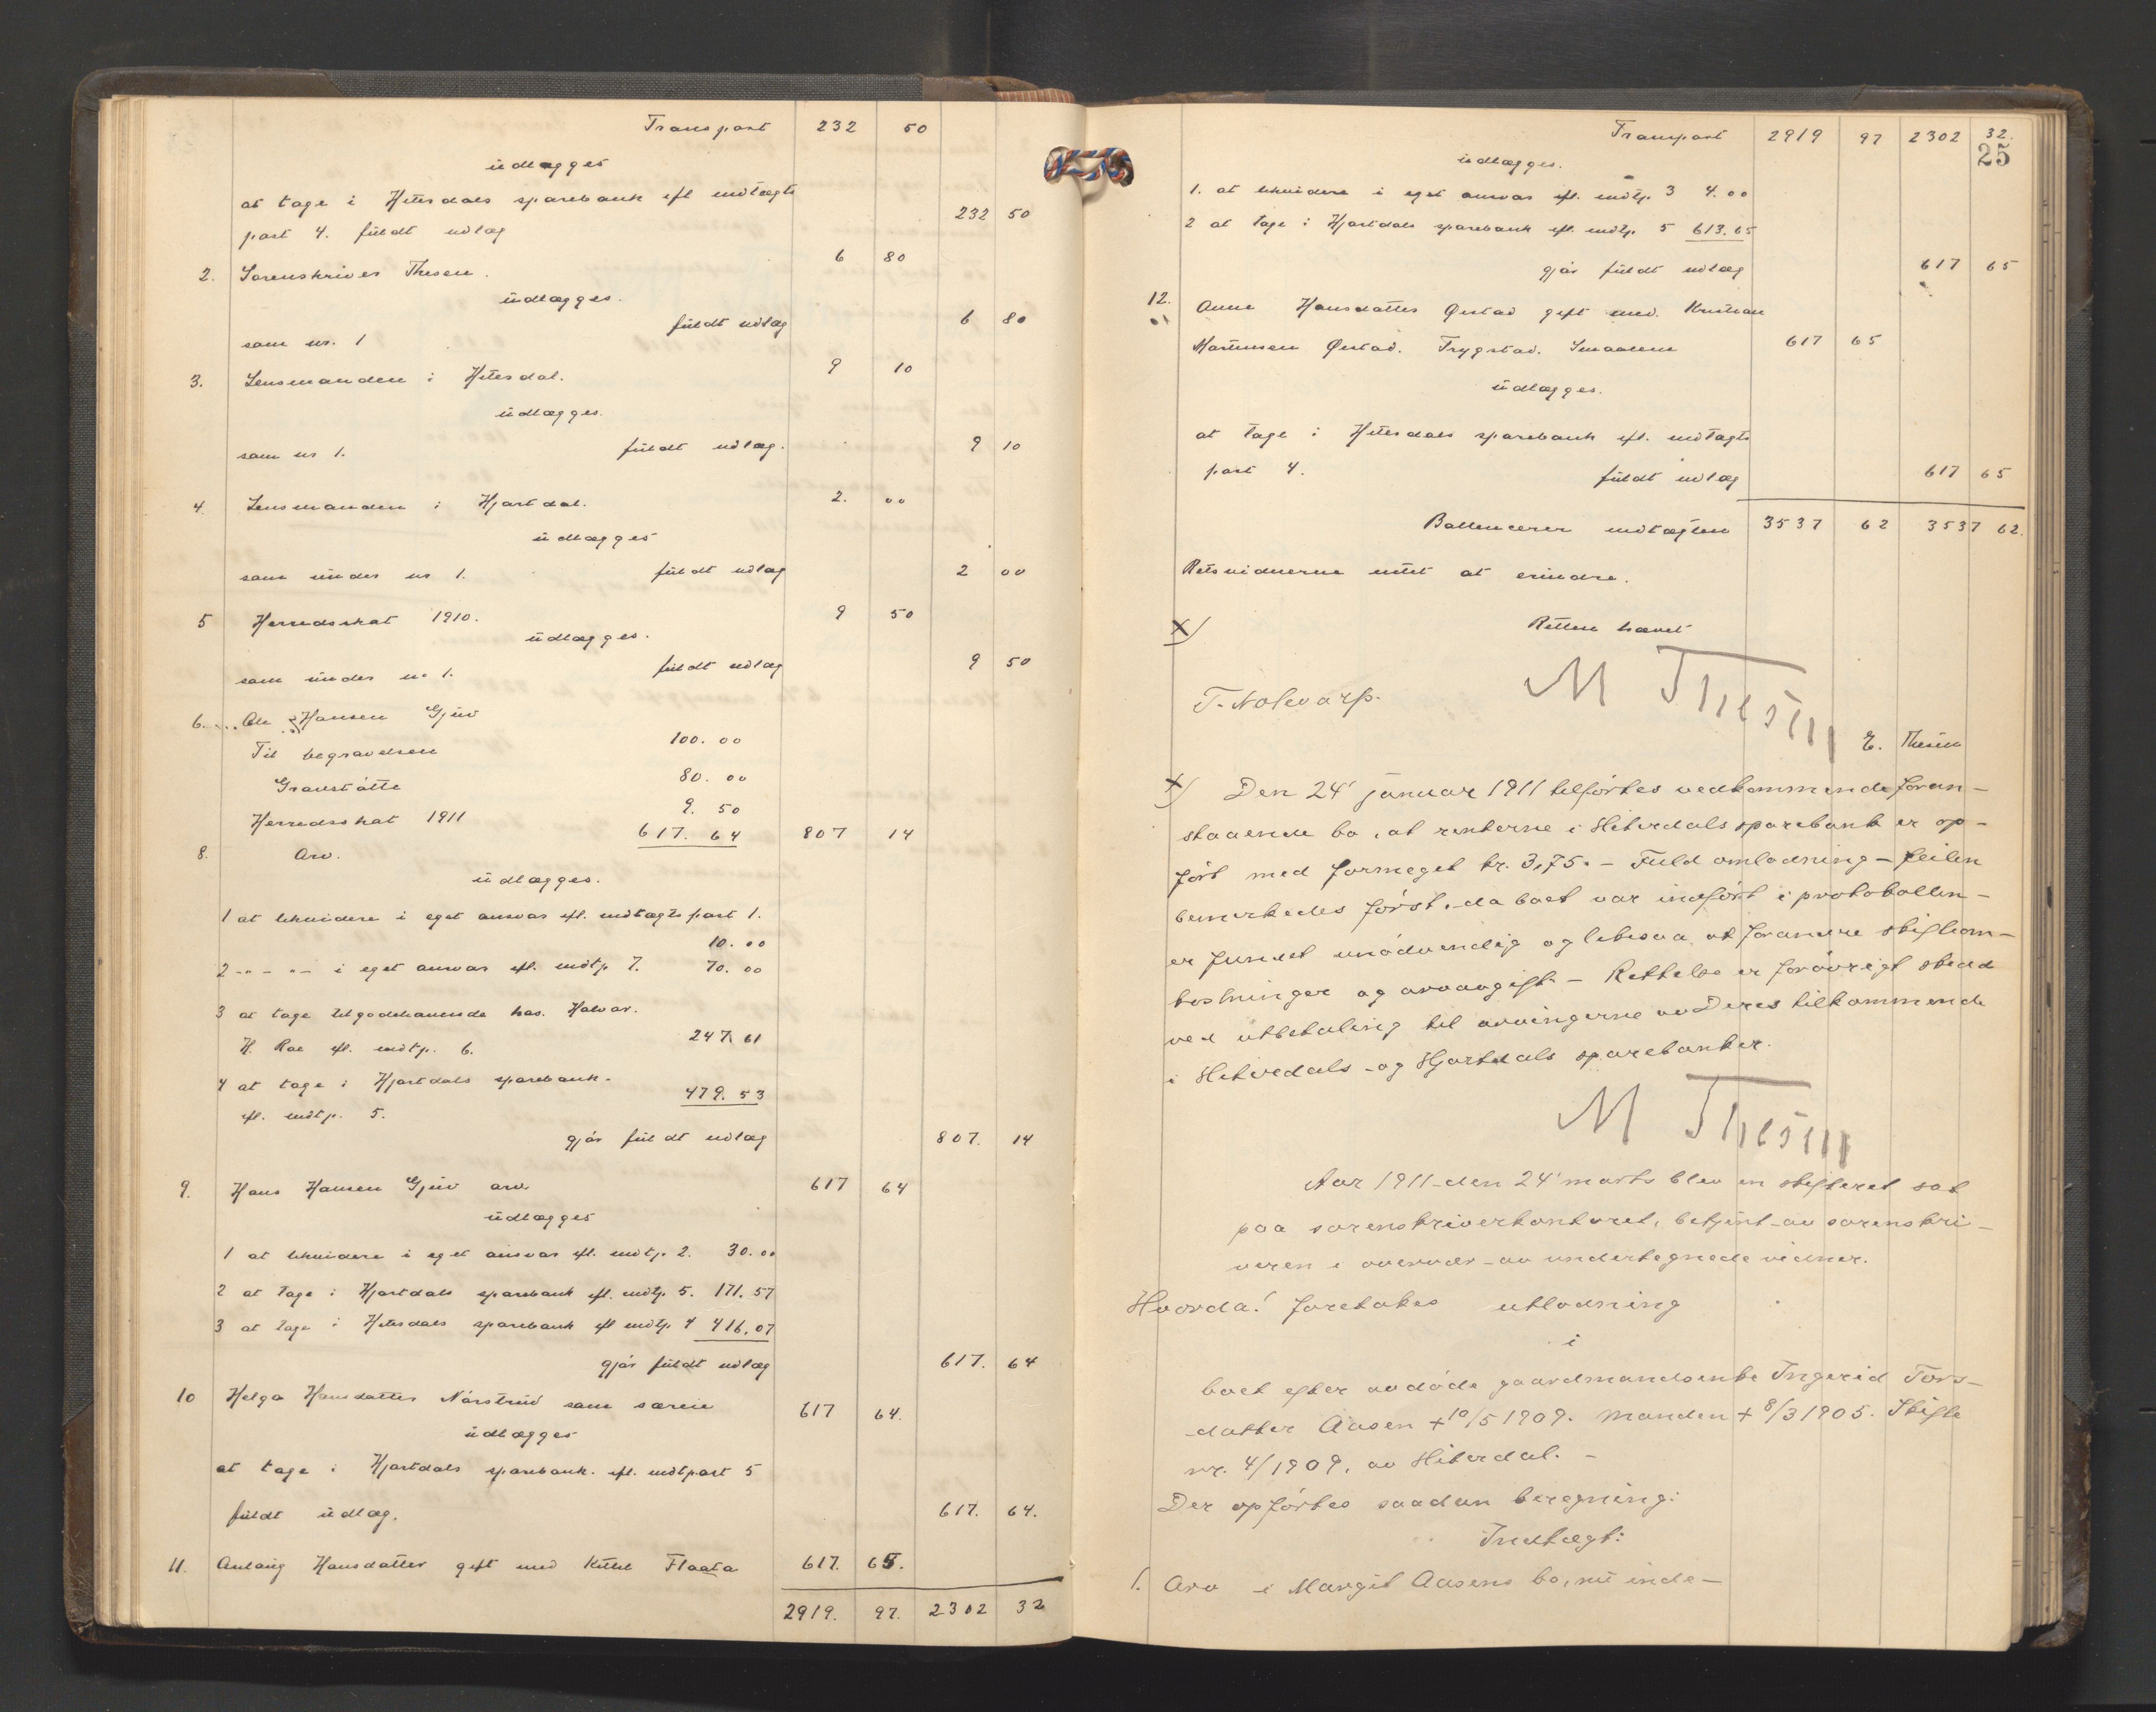 Transport 232 50
udlægges
at tage i Hiterdals sparebank efl indtægts
post 4. fuldt udlæg 232 50
2. Sorenskriver Thesen. 6 80
udlægges.
som nr. 1 fuldt udlæg 6 80
3. Lensmanden i Hiterdal. 9 10
udlægges.
som nr 1. fuldt udlæg. 9 10
4. Lensmanden i Hjartdal. 2. 00
udlægges
som under nr 1. fuldt udlæg 2 00
5 Herredsskat 1910. 9 50
udlægges.
som under nr 1. fuldt udlæg 9 50
6. Ole Hansen Gjuv
Til begravelsen 100.00
Gravstøtte 80.00
Herredsskat 1911 9.50
8. Arv. 617.64 807 14
udlægges.
1 at likvidere i eget ansvar efl. indtægts post 1.
10.00
2 -"- -"- i eget ansvar efl. indtp 7. 70.00
3 at tage tilgodehavende hos. Halvor.
H. Roe efl. indtp. 6. 247.61
4 at tage i Hjartdals sparebank.
efl. indtp. 5. 479.53
gjør fuldt udlæg 807. 14
9. Hans Hansen Gjuv arv 617 64
udlægges
1 at likvidere i eget ansvar efl. indtp 2. 30.00
2 at tage i Hjartdals sparebank efl. indtp. 5. 171.57
3 at tage i Hiterdals sparebank efl indtp 4 416,07
gjør fuldt udlæg 617. 64
10 Helga Hansdatter Nørstrud som særeie 617 64.
udlægges
at tage i Hjartdals sparebank. efl. indtpost 5
fuldt udlæg. 617. 64.
11. Anlaug Hansdatter gift med Kittil Flaata 617. 65.
2919. 97. 2302 32
Transport 2919 97 2302 32.
25
udlægges.
1. at likvidere i eget ansvar efl. indtp. 3 4.00
2 at tage i Hjartdals sparebank efl. indtp. 5 613.65
gjør fuldt udlæg 617 65
12. Anne Hansdatter Ørstad gift med. Kristian
Martinsen Ørstad. Trygstad. Smaalene 617 65
udlægges.
at tage i Hiterdals sparebank efl. indtægts
post 4. fuldt udlæg 617 65
Ballancerer indtægten 3537 62 3537 62.
Retsvidnerne intet at erindre.
x) Retten hævet
M Thesen
T. Nolevarp.
E. Thesen
x) Den 24' januar 1911 tilførtes vedkommende foran-
staaende bo, at renterne i Hiterdals sparebank er op-
ført med formeget kr. 3,75. - Fuld omlodning - feilen
bemerkedes først, da boet var indført i protokollen -
er fundet unødvendig og likesaa at forandre skifteom-
kostninger og arvavgift. - Rettelse er forøvrigt skedd
ved utbetaling til arvingerne av Deres tilkommende
i Hiterdals - og Hjartdals sparebanker.
M Thesen
Aar 1911 den 24' marts blev en skifteret sat
paa sorenskriverkontoret, betjent av sorenskri-
veren i overvær av undertegnede vidner.
Hvorda! foretokes utlodning
i
boet efter avdøde gaardmandsenke Ingerid Tors-
datter Aasen + 10/5 1909. Manden + 8/3 1905. Skifte
nr. 4/1909, av Hiterdal. -
Der opførtes saadan beregning:
Indtægt:
1. Arv i Margit Aasens bo, nu inde-